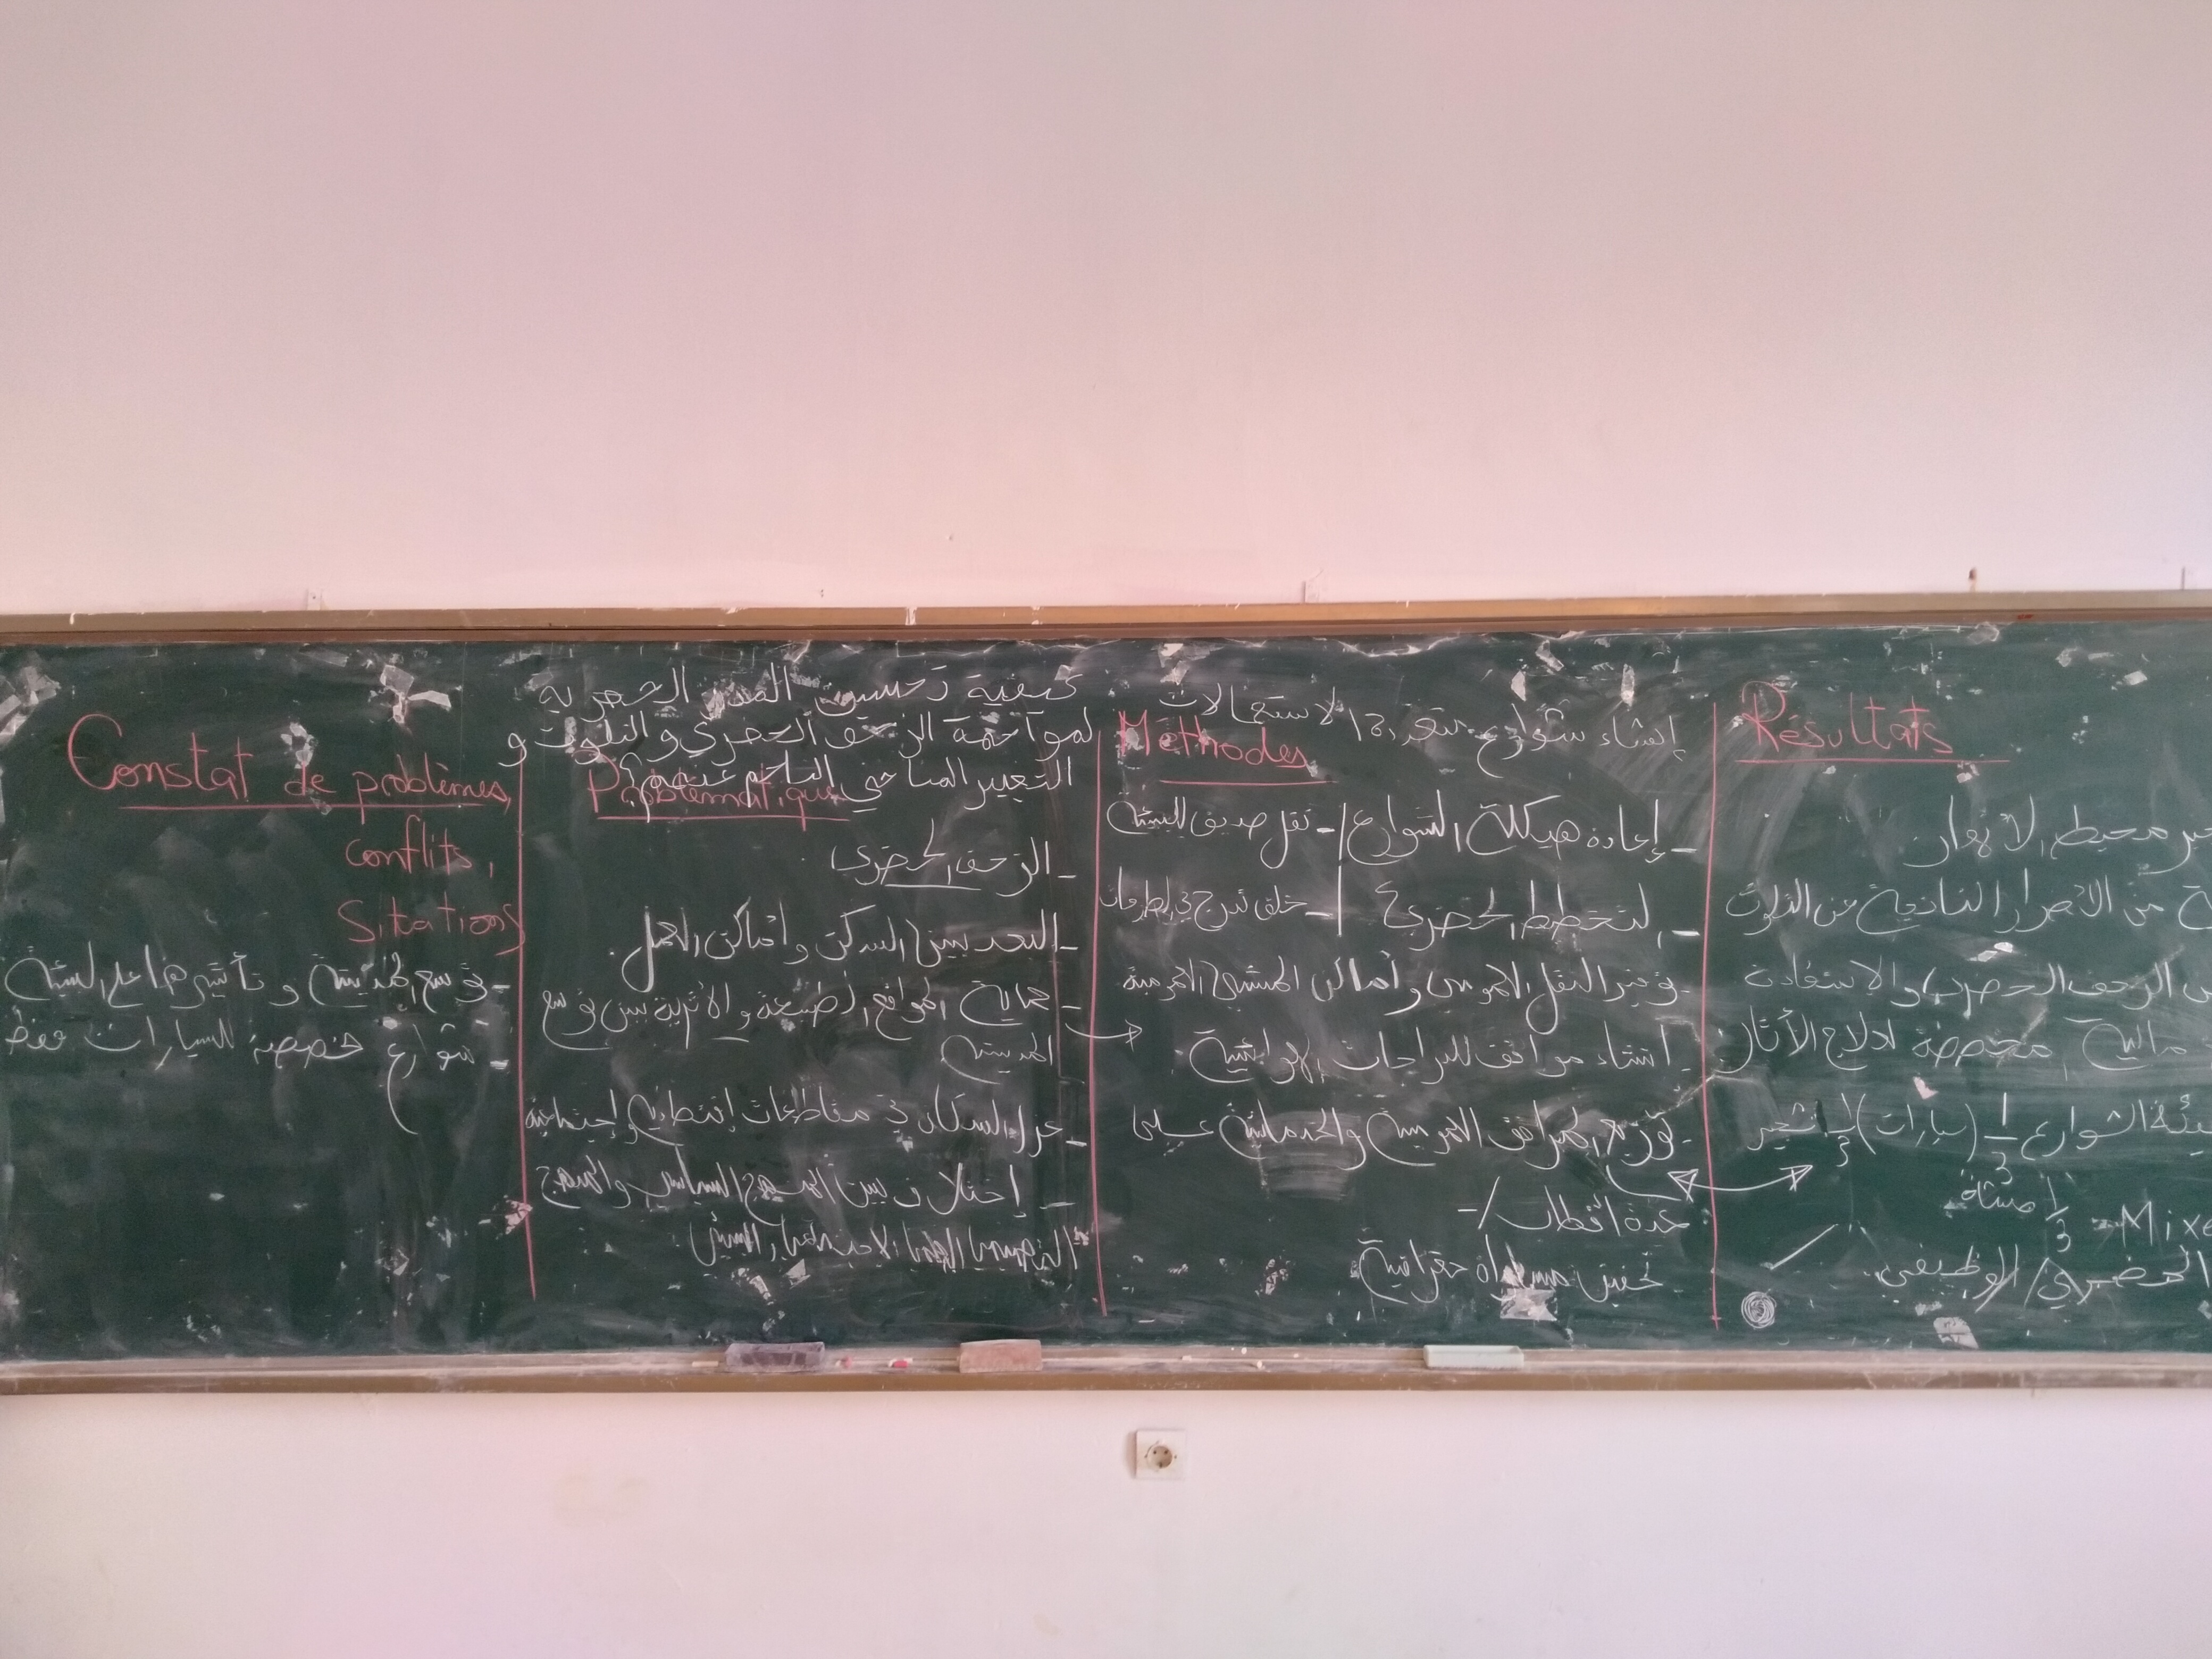 Constat de problèmes,
conflits,
Situations
- توسع المدينة و تأثيرها على البيئة
- شوارع خصصة للسيارات فقط
كيفية تحسين المدن الحضرية
لمواجهة الزحف الحضري و التلوث و
التغيير المناخي الناجم عنهم؟
Problématique
- الزحف الحضري
- البعد بين السكن و أماكن العمل.
- حماية المواقع الطبيعة و الأثرية بين توسع
المدينة
- عزل السكان في مقاطعات إقتصادية و إجتماعية
- إختلاف بين
إنشاء شوارع متعددة الاستعمالات
Méthodes
- إعادة هيكلة الشوارع
- نقل صديق للبيئة
- التخطيط الحضري
- خلق تدرج في الطرقات
- توفير النقل العمومي و أماكن المشي العمومية
- انشاء مواقف للدراجات الهوائية
- توزيع المرافق العمومية والخدماتية على
عدة أقطاب -
Résultats
محيط الأنهار
من الأضرار الناتجة عن التلوث
الزحف الحضري و الاستفادة
مالية مخصصة لعلاج الأثار
الشوارع 1/3 (سيارات) 1/3 تشجير
1/3 مشاة
- Mixe
الحضري / الوظيفي.